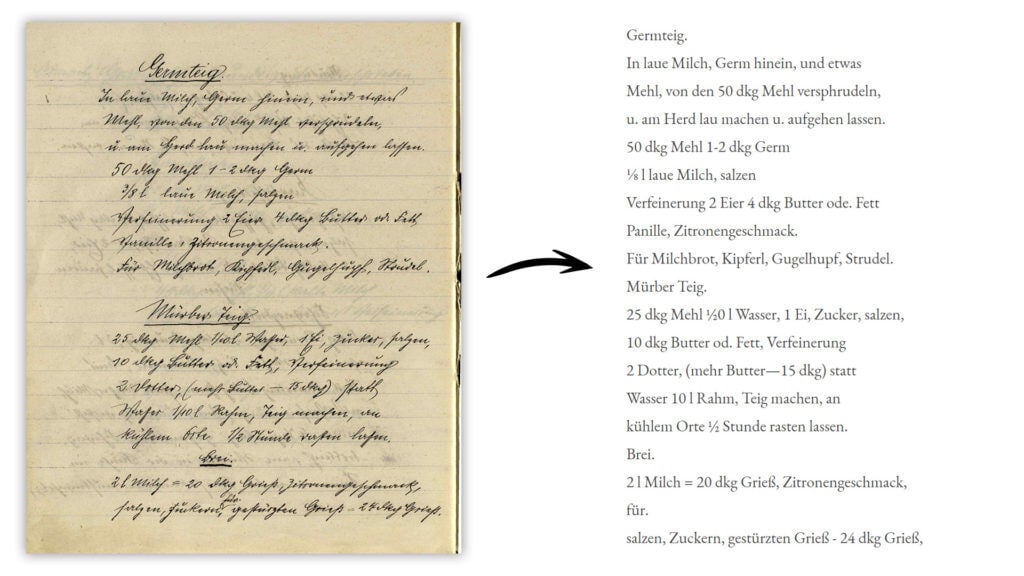 Germteig.
In laue Milch, Germ hinein, und etwas
Mehl, von den 50 dkg Mehl versprudeln,
u. am Herd lau machen u. aufgehen lassen.
50 dkg Mehl 1-2 dkg Germ
3/8 l laue Milch, salzen
Verfeinerung 2 Eier 4 dkg Butter od. Fett
Vanille, Zitronengeschmack.
Für Milchbrot, Kipferl, Gugelhupf, Strudel.
Mürber Teig.
25 dkg Mehl 1/10 l Wasser, 1 Ei, Zucker, salzen,
10 dkg Butter od. Fett, Verfeinerung
2 Dotter, (mehr Butter — 15 dkg) statt
Wasser 1/10 l Rahm, Teig machen, an
kühlem Orte 1/2 Stunde rasten lassen.
Brei.
2 l Milch = 20 dkg Grieß, Zitronengeschmack,
für
salzen, Zuckern, gestürzten Grieß - 24 dkg Grieß.
Germteig.
In laue Milch, Germ hinein, und etwas
Mehl, von den 50 dkg Mehl versprudeln,
u. am Herd lau machen u. aufgehen lassen.
50 dkg Mehl 1-2 dkg Germ
⅛ l laue Milch, salzen
Verfeinerung 2 Eier 4 dkg Butter ode. Fett
Panille, Zitronengeschmack.
Für Milchbrot, Kipferl, Gugelhupf, Strudel.
Mürber Teig.
25 dkg Mehl ½0 l Wasser, 1 Ei, Zucker, salzen,
10 dkg Butter od. Fett, Verfeinerung
2 Dotter, (mehr Butter—15 dkg) statt
Wasser 10 l Rahm, Teig machen, an
kühlem Orte ½ Stunde rasten lassen.
Brei.
2 l Milch = 20 dkg Grieß, Zitronengeschmack,
für.
salzen, Zuckern, gestürzten Grieß - 24 dkg Grieß,